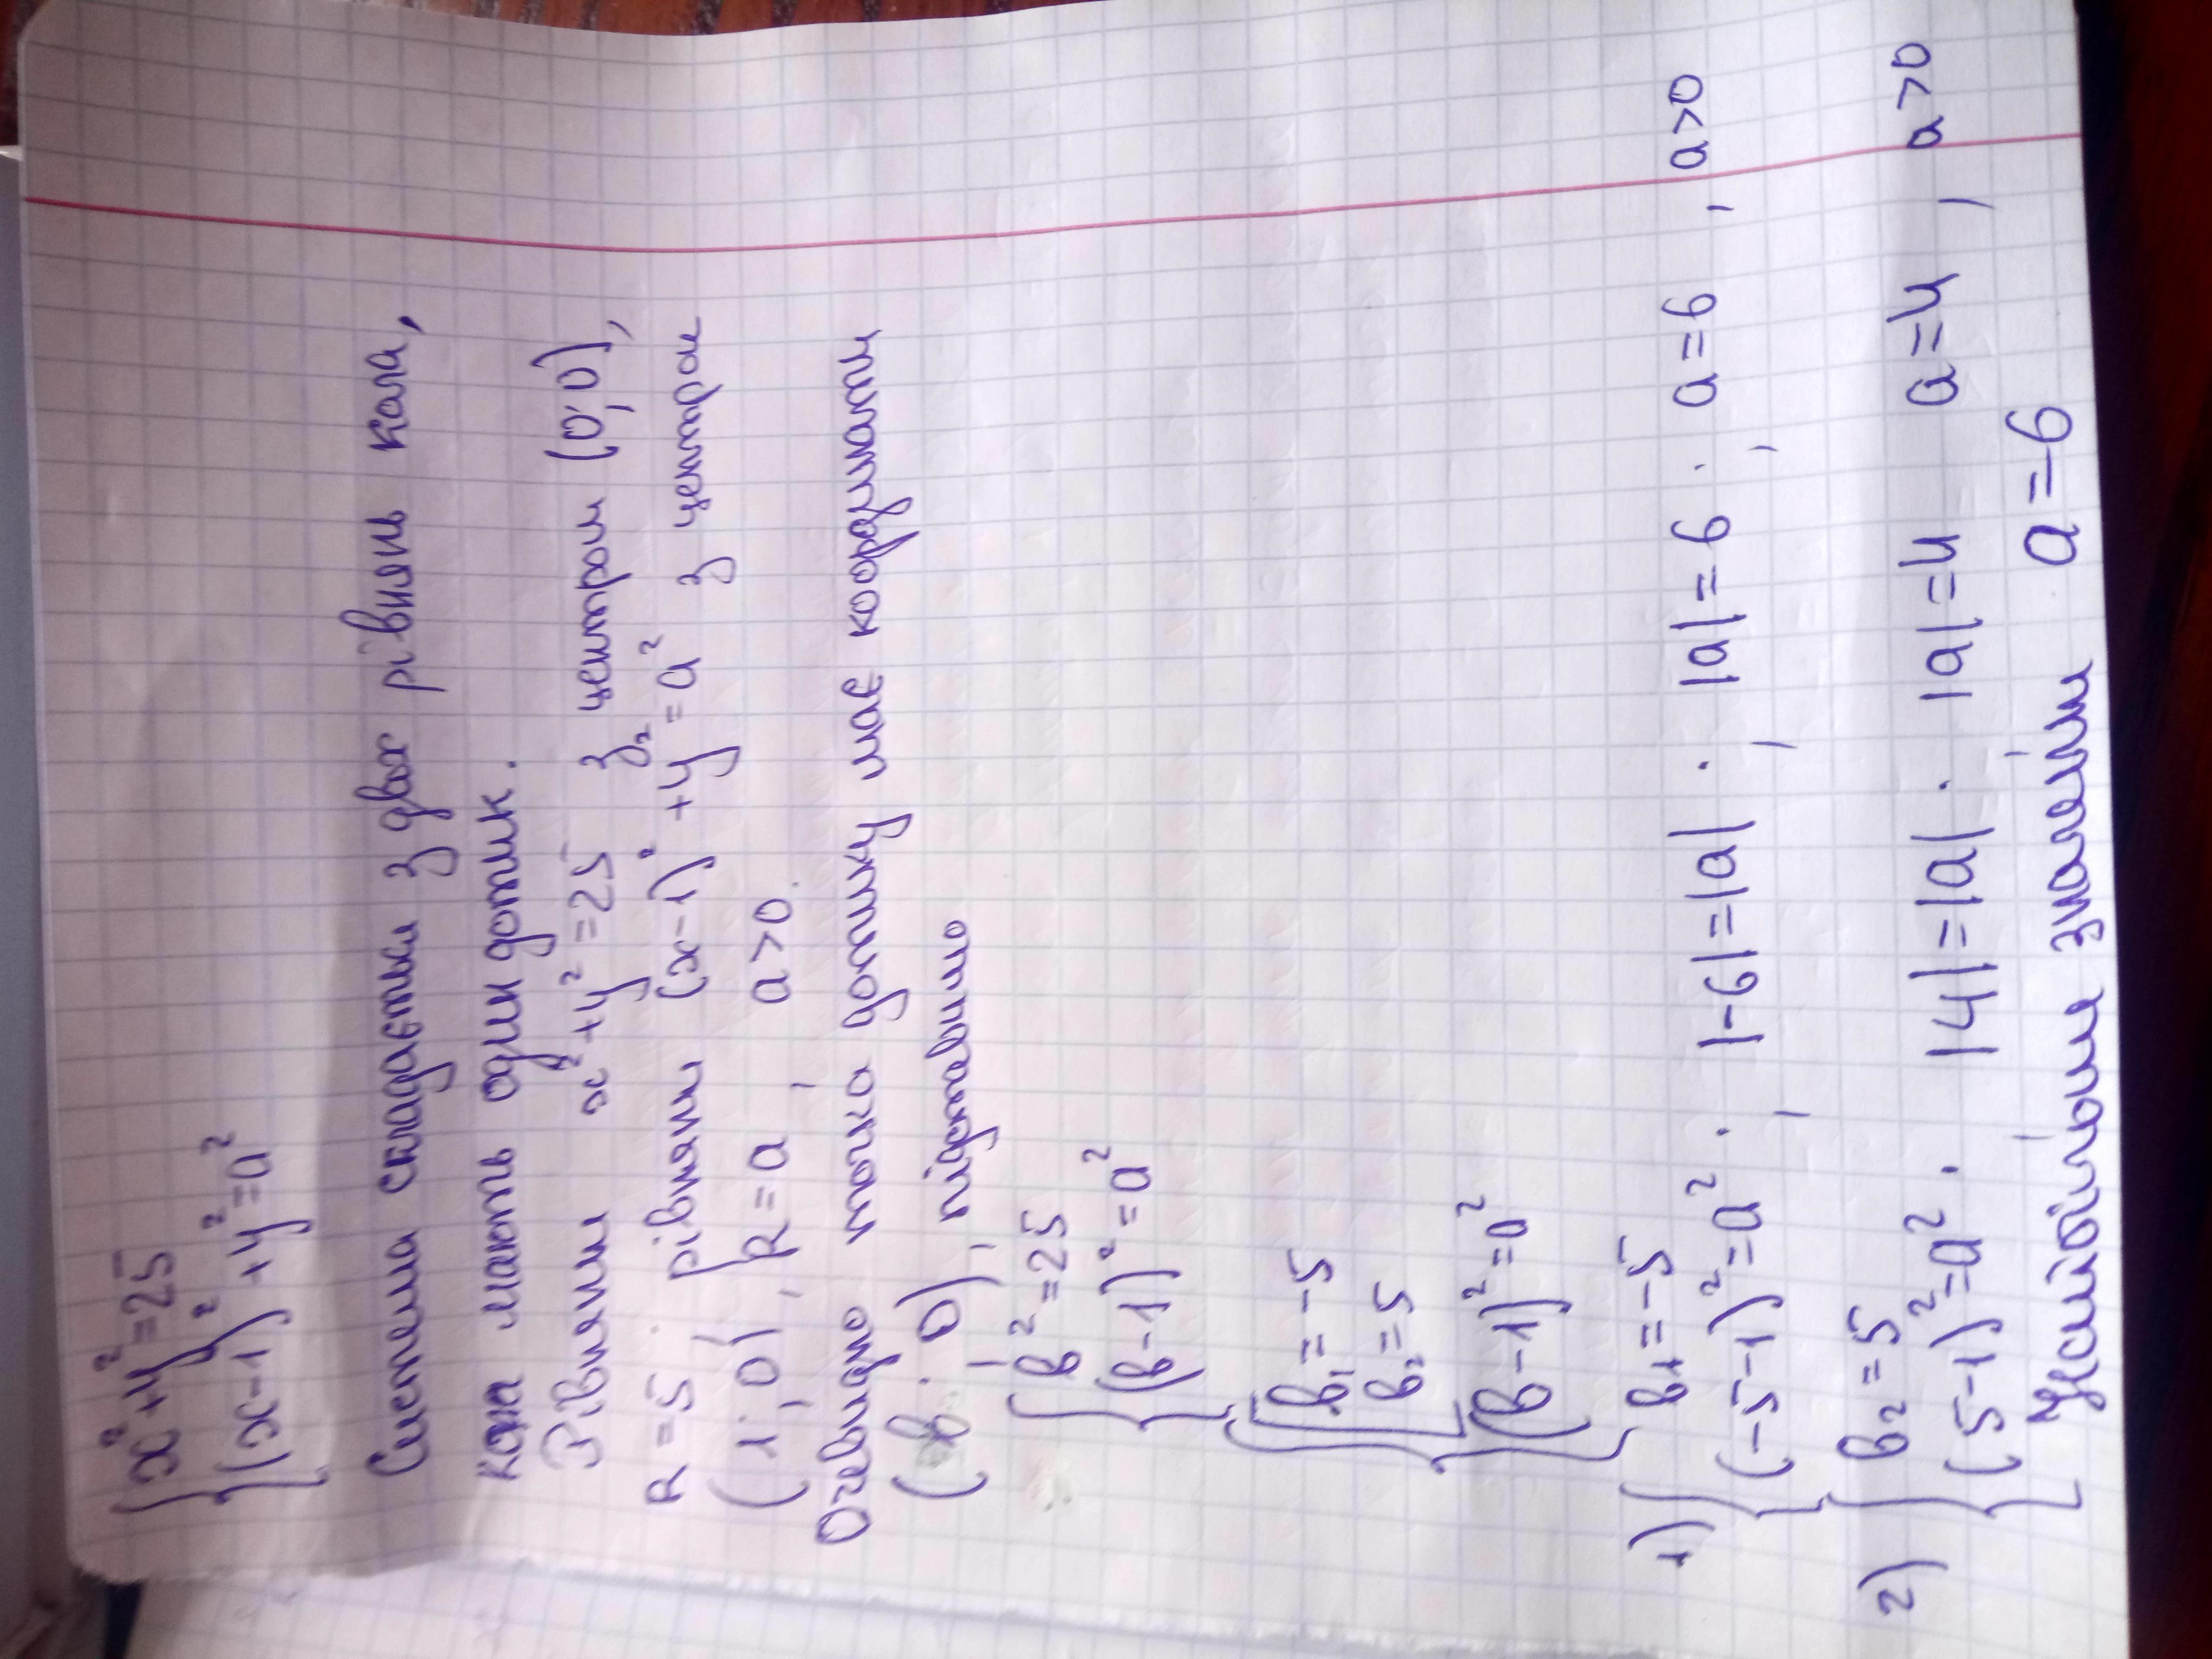 {x²+y²=25
{(x-1)²+y²=a²
Система складається з двох рівнянь кола,
кола мають один дотик.
Рівняння x²+y²=25 з центром (0;0),
R=5; рівняння (x-1)²+y²=a² з центром
(1;0), R=a, a>0.
Очевидно точка дотику має координати
(b;0), підставимо
{b²=25
{(b-1)²=a²
{[b₁=-5
[b₂=5
{(b-1)²=a²
1) {b₁=-5
{(-5-1)²=a²; |-6|=|a|; |a|=6; a=6, a>0
2) {b₂=5
{(5-1)²=a²; |4|=|a|; |a|=4 a=4, a>0
Найбільше значення a=6